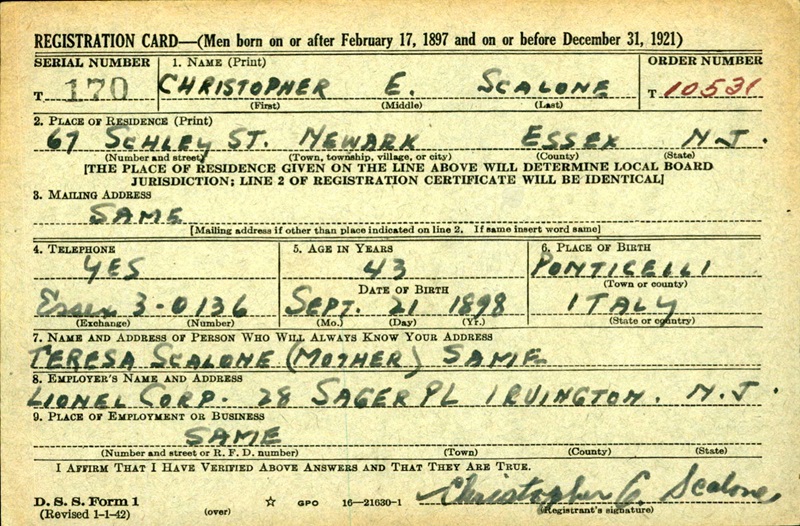 REGISTRATION CARD—(Men born on or after February 17, 1897 and on or before December 31, 1921)
SERIAL NUMBER 1. NAME (Print) ORDER NUMBER
T 170 CHRISTOPHER E. SCALONE T 10531
(First) (Middle) (Last)
2. PLACE OF RESIDENCE (Print)
67 SCHLEY ST. NEWARK ESSEX N.J.
(Number and street) (Town, township, village, or city) (County) (State)
[THE PLACE OF RESIDENCE GIVEN ON THE LINE ABOVE WILL DETERMINE LOCAL BOARD
JURISDICTION; LINE 2 OF REGISTRATION CERTIFICATE WILL BE IDENTICAL]
3. MAILING ADDRESS
SAME
[Mailing address if other than place indicated on line 2. If same insert word same]
4. TELEPHONE 5. AGE IN YEARS 6. PLACE OF BIRTH
YES 43 PONTICELLI
DATE OF BIRTH (Town or county)
Essex 3-0136 SEPT. 21 1898 ITALY
(Exchange) (Number) (Mo.) (Day) (Yr.) (State or country)
7. NAME AND ADDRESS OF PERSON WHO WILL ALWAYS KNOW YOUR ADDRESS
TERESA SCALONE (MOTHER) SAME
8. EMPLOYER'S NAME AND ADDRESS
LIONEL CORP. 28 SAGER PL IRVINGTON. N.J.
9. PLACE OF EMPLOYMENT OR BUSINESS
SAME
(Number and street or R. F. D. number) (Town) (County) (State)
I AFFIRM THAT I HAVE VERIFIED ABOVE ANSWERS AND THAT THEY ARE TRUE.
D. S. S. Form 1 ☆ GPO 16—21630-1 Christopher E. Scalone
(Revised 1-1-42) (over) (Registrant's signature)